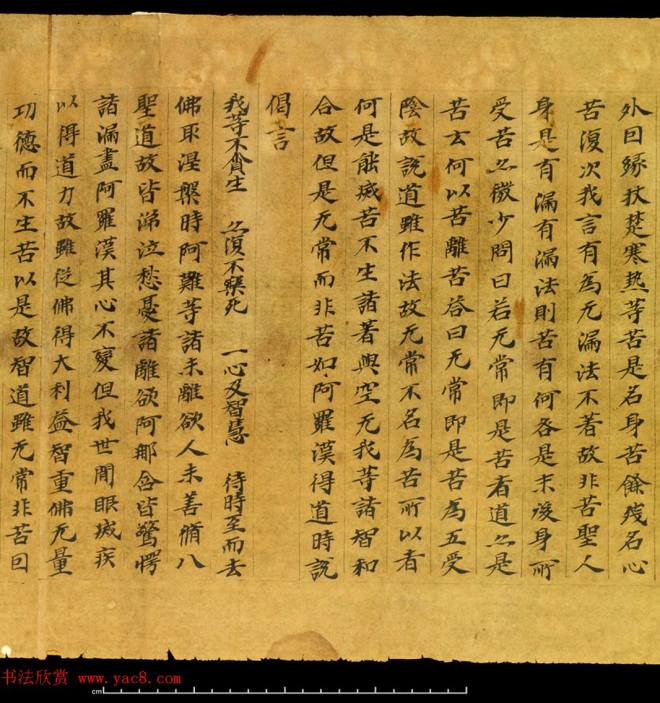 外因緣杖楚寒熱等苦是名身苦餘殘名心
苦復次我言有為无漏法不著故非苦聖人
身是有漏有漏法則苦有何咎是末後身所
受苦亦微少問曰若无常即是苦者道亦是
苦云何以苦離苦答曰无常即是苦為五受
陰故說道雖作法故无常不名為苦所以者
何是能滅苦不生諸著與空无我等諸智和
合故但是无常而非苦如阿羅漢得道時說
偈言
我等不貪生 亦復不樂死 一心及智慧 待時至而去
佛取涅槃時阿難等諸未離欲人未善脩八
聖道故皆涕泣愁憂諸離欲阿那含皆驚愕
諸漏盡阿羅漢其心不變但我世閒眼滅疾
以得道力故雖從佛得大利益智重佛无量
功德而不生苦以是故智道雖无常非苦因
书法欣赏 www.yac8.com
cm